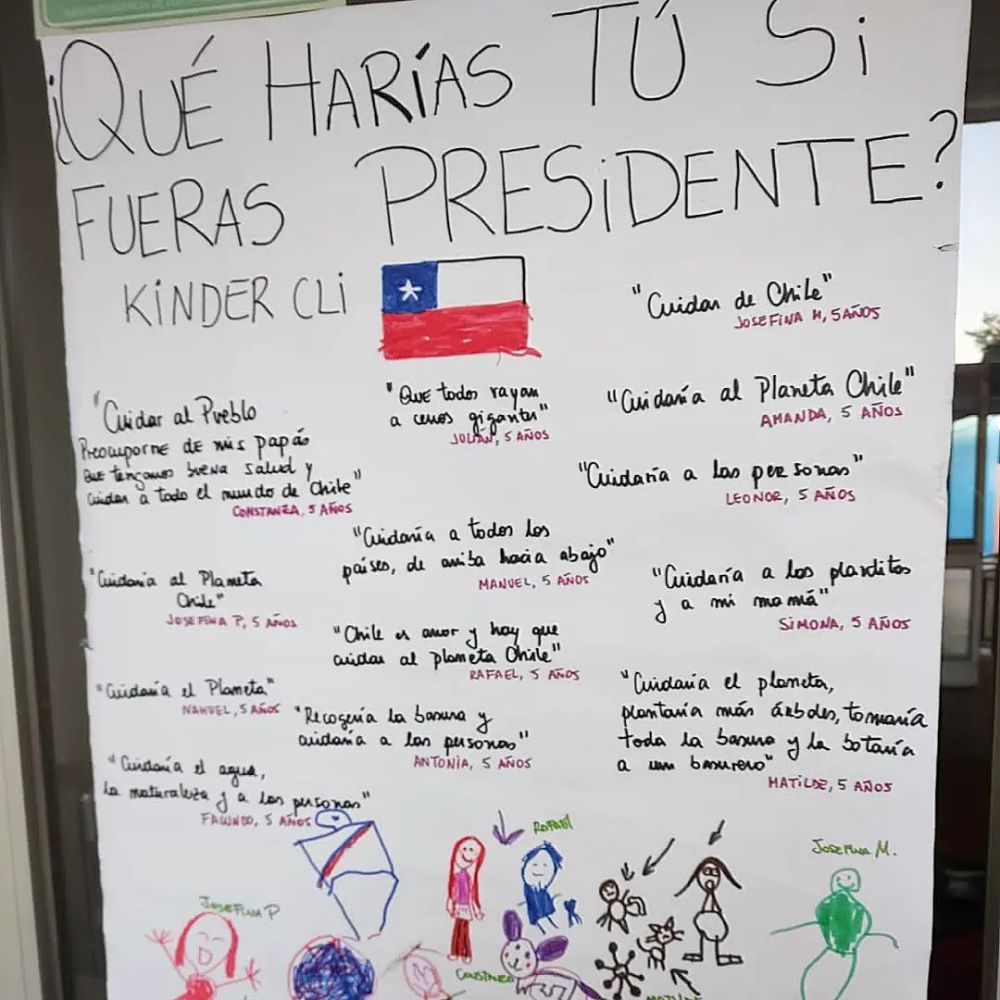 ¿QUÉ HARÍAS TÚ SI
FUERAS PRESIDENTE?
KINDER CLI
"Cuidar de Chile"
JOSEFINA M, 5 AÑOS
"Cuidar al Pueblo
Preocuparme de mis papás
que tengamos buena salud y
cuidar a todo el mundo de Chile"
CONSTANZA, 5 AÑOS
"Que todos vayan
a cerros gigantes"
JULIÁN, 5 AÑOS
"Cuidaría al Planeta Chile"
AMANDA, 5 AÑOS
"Cuidaría a las personas"
LEONOR, 5 AÑOS
"Cuidaría a todos los
países, de arriba hacia abajo"
MANUEL, 5 AÑOS
"Cuidaría al Planeta
Chile"
JOSEFINA P, 5 AÑOS
"Cuidaría a las plantitas
y a mi mamá"
SIMONA, 5 AÑOS
"Chile es amor y hay que
cuidar al planeta Chile"
RAFAEL, 5 AÑOS
"Cuidaría el Planeta"
NAHUEL, 5 AÑOS
"Recogería la basura y
cuidaría a las personas"
ANTONIA, 5 AÑOS
"Cuidaría el planeta,
plantaría más árboles, tomaría
toda la basura y la botaría
a un basurero"
MATILDE, 5 AÑOS
"Cuidaría el agua,
la naturaleza y a las personas"
FACUNDO, 5 AÑOS
RAFAEL
JOSEFINA M.
JOSEFINA P
CONSTANZA